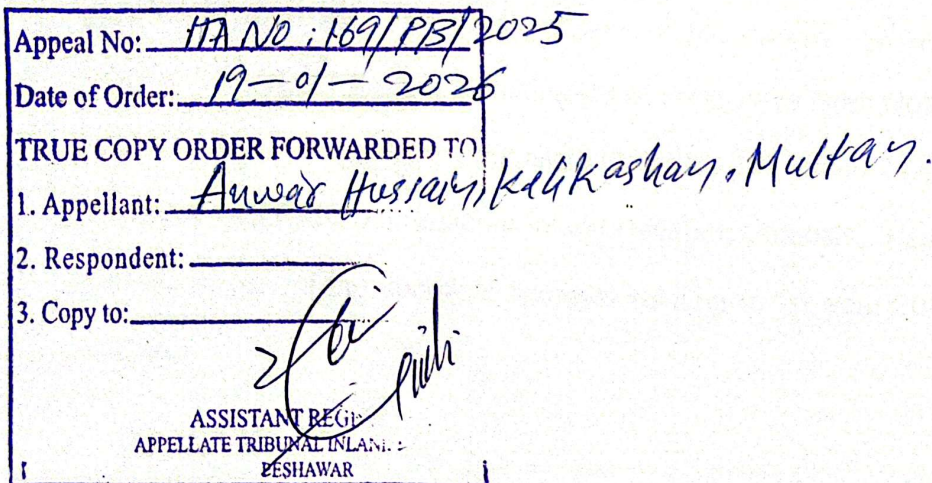 Appeal No: ITA NO: 169/PB/2025
Date of Order: 19-01-2026
TRUE COPY ORDER FORWARDED TO
1. Appellant: Anwar Hussain, Kehkashan, Multan.
2. Respondent:
3. Copy to:
ASSISTANT REGI
APPELLATE TRIBUNAL INLAN
PESHAWAR